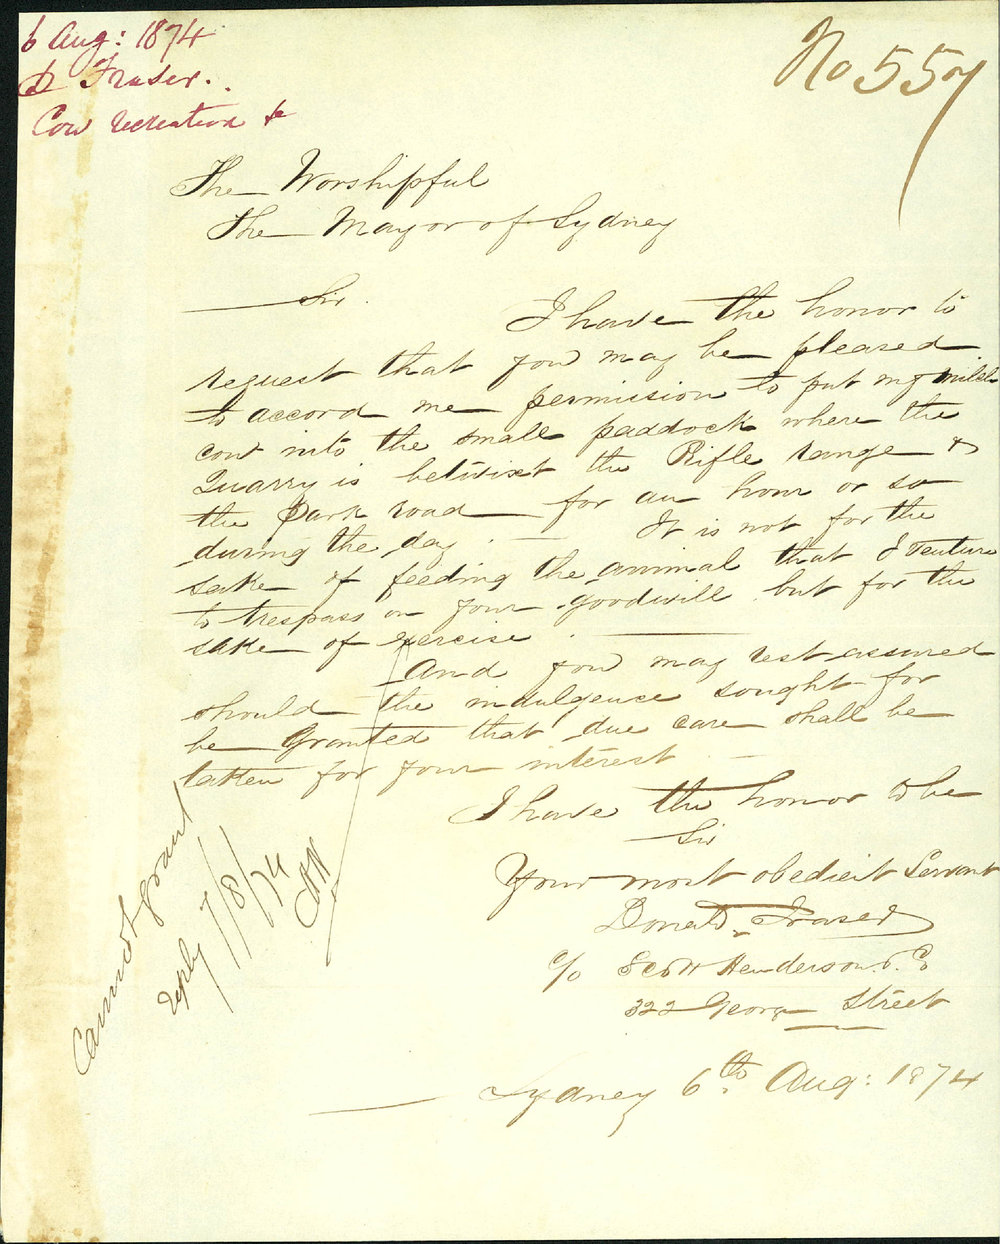 6 Aug: 1874
D Fraser.
Cow recreation &c
No 557
The Worshipful
The Mayor of Sydney
Sir.
I have the honor to
request that you may be pleased
to accord me permission to put my milch
cow into the small paddock where the
Quarry is betwixt the Rifle range &
the Park road for an hour or so
during the day. It is not for the
sake of feeding the animal that I venture
to trespass on your goodwill but for the
sake of exercise.
And you may rest assured
should the indulgence sought for
be granted that due care shall be
taken for your interest
I have the honor to be
Sir
Your most obedient Servant
Donald Fraser
c/o Scott Henderson & Co
322 George Street
Sydney 6th Aug: 1874
Cannot grant
reply 7/8/74